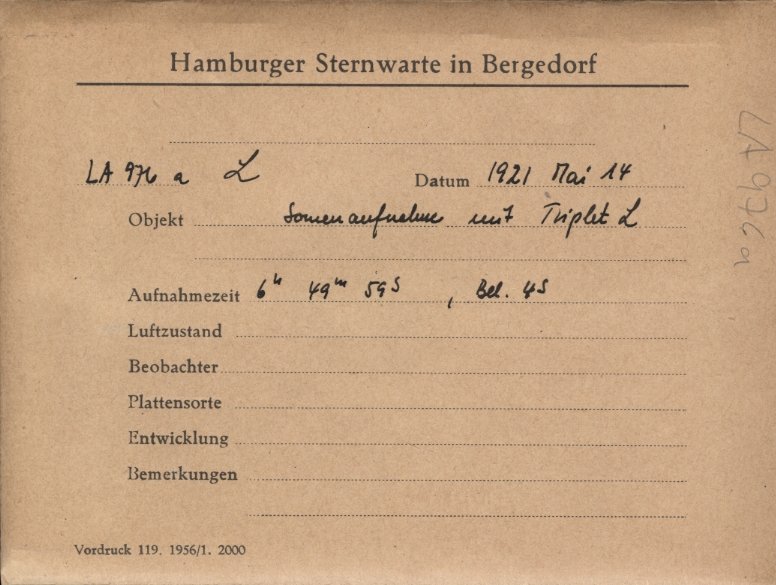 Hamburger Sternwarte in Bergedorf
LA 976 a L
Datum 1921 Mai 14
Objekt Sonnenaufnahme mit Triplet L
Aufnahmezeit 6h 49m 59s, Bel. 4s
Luftzustand
Beobachter
Plattensorte
Entwicklung
Bemerkungen
Vordruck 119. 1956/1. 2000
LA 976a